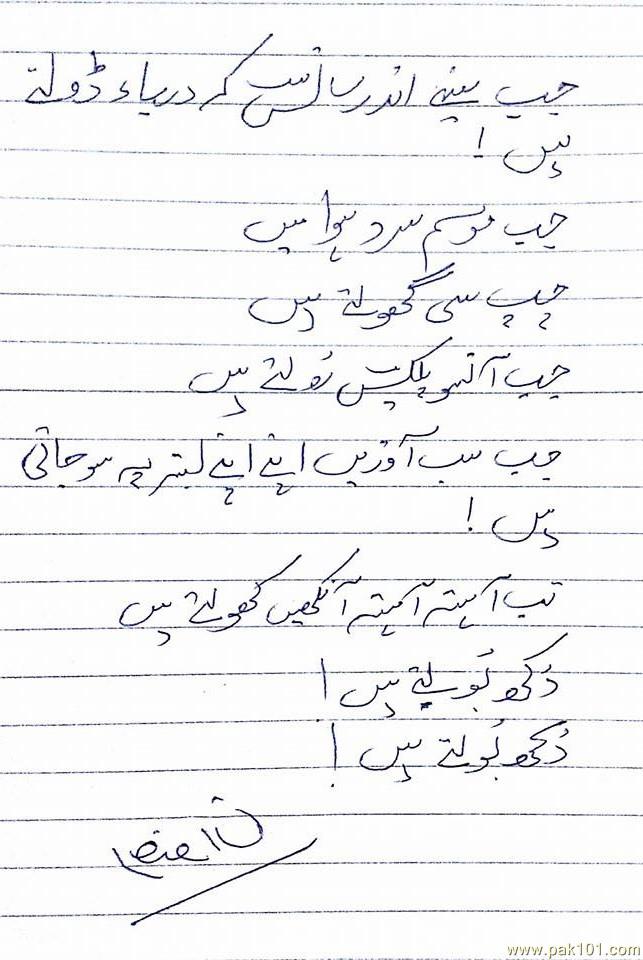 جب سینے اندر سانس کے دریاء ڈولتے
ہیں !
جب موسم سرد ہوا میں
چپ سی گھولتے ہیں
جب آنسو پلکیں رُولتے ہیں
جب سب آوزیں اپنے اپنے بستر پہ سو جاتی
ہیں !
تب آہستہ آہستہ آنکھیں کھولتے ہیں
دُکھ بُولتے ہیں !
دُکھ بُولتے ہیں !
www.pak101.com